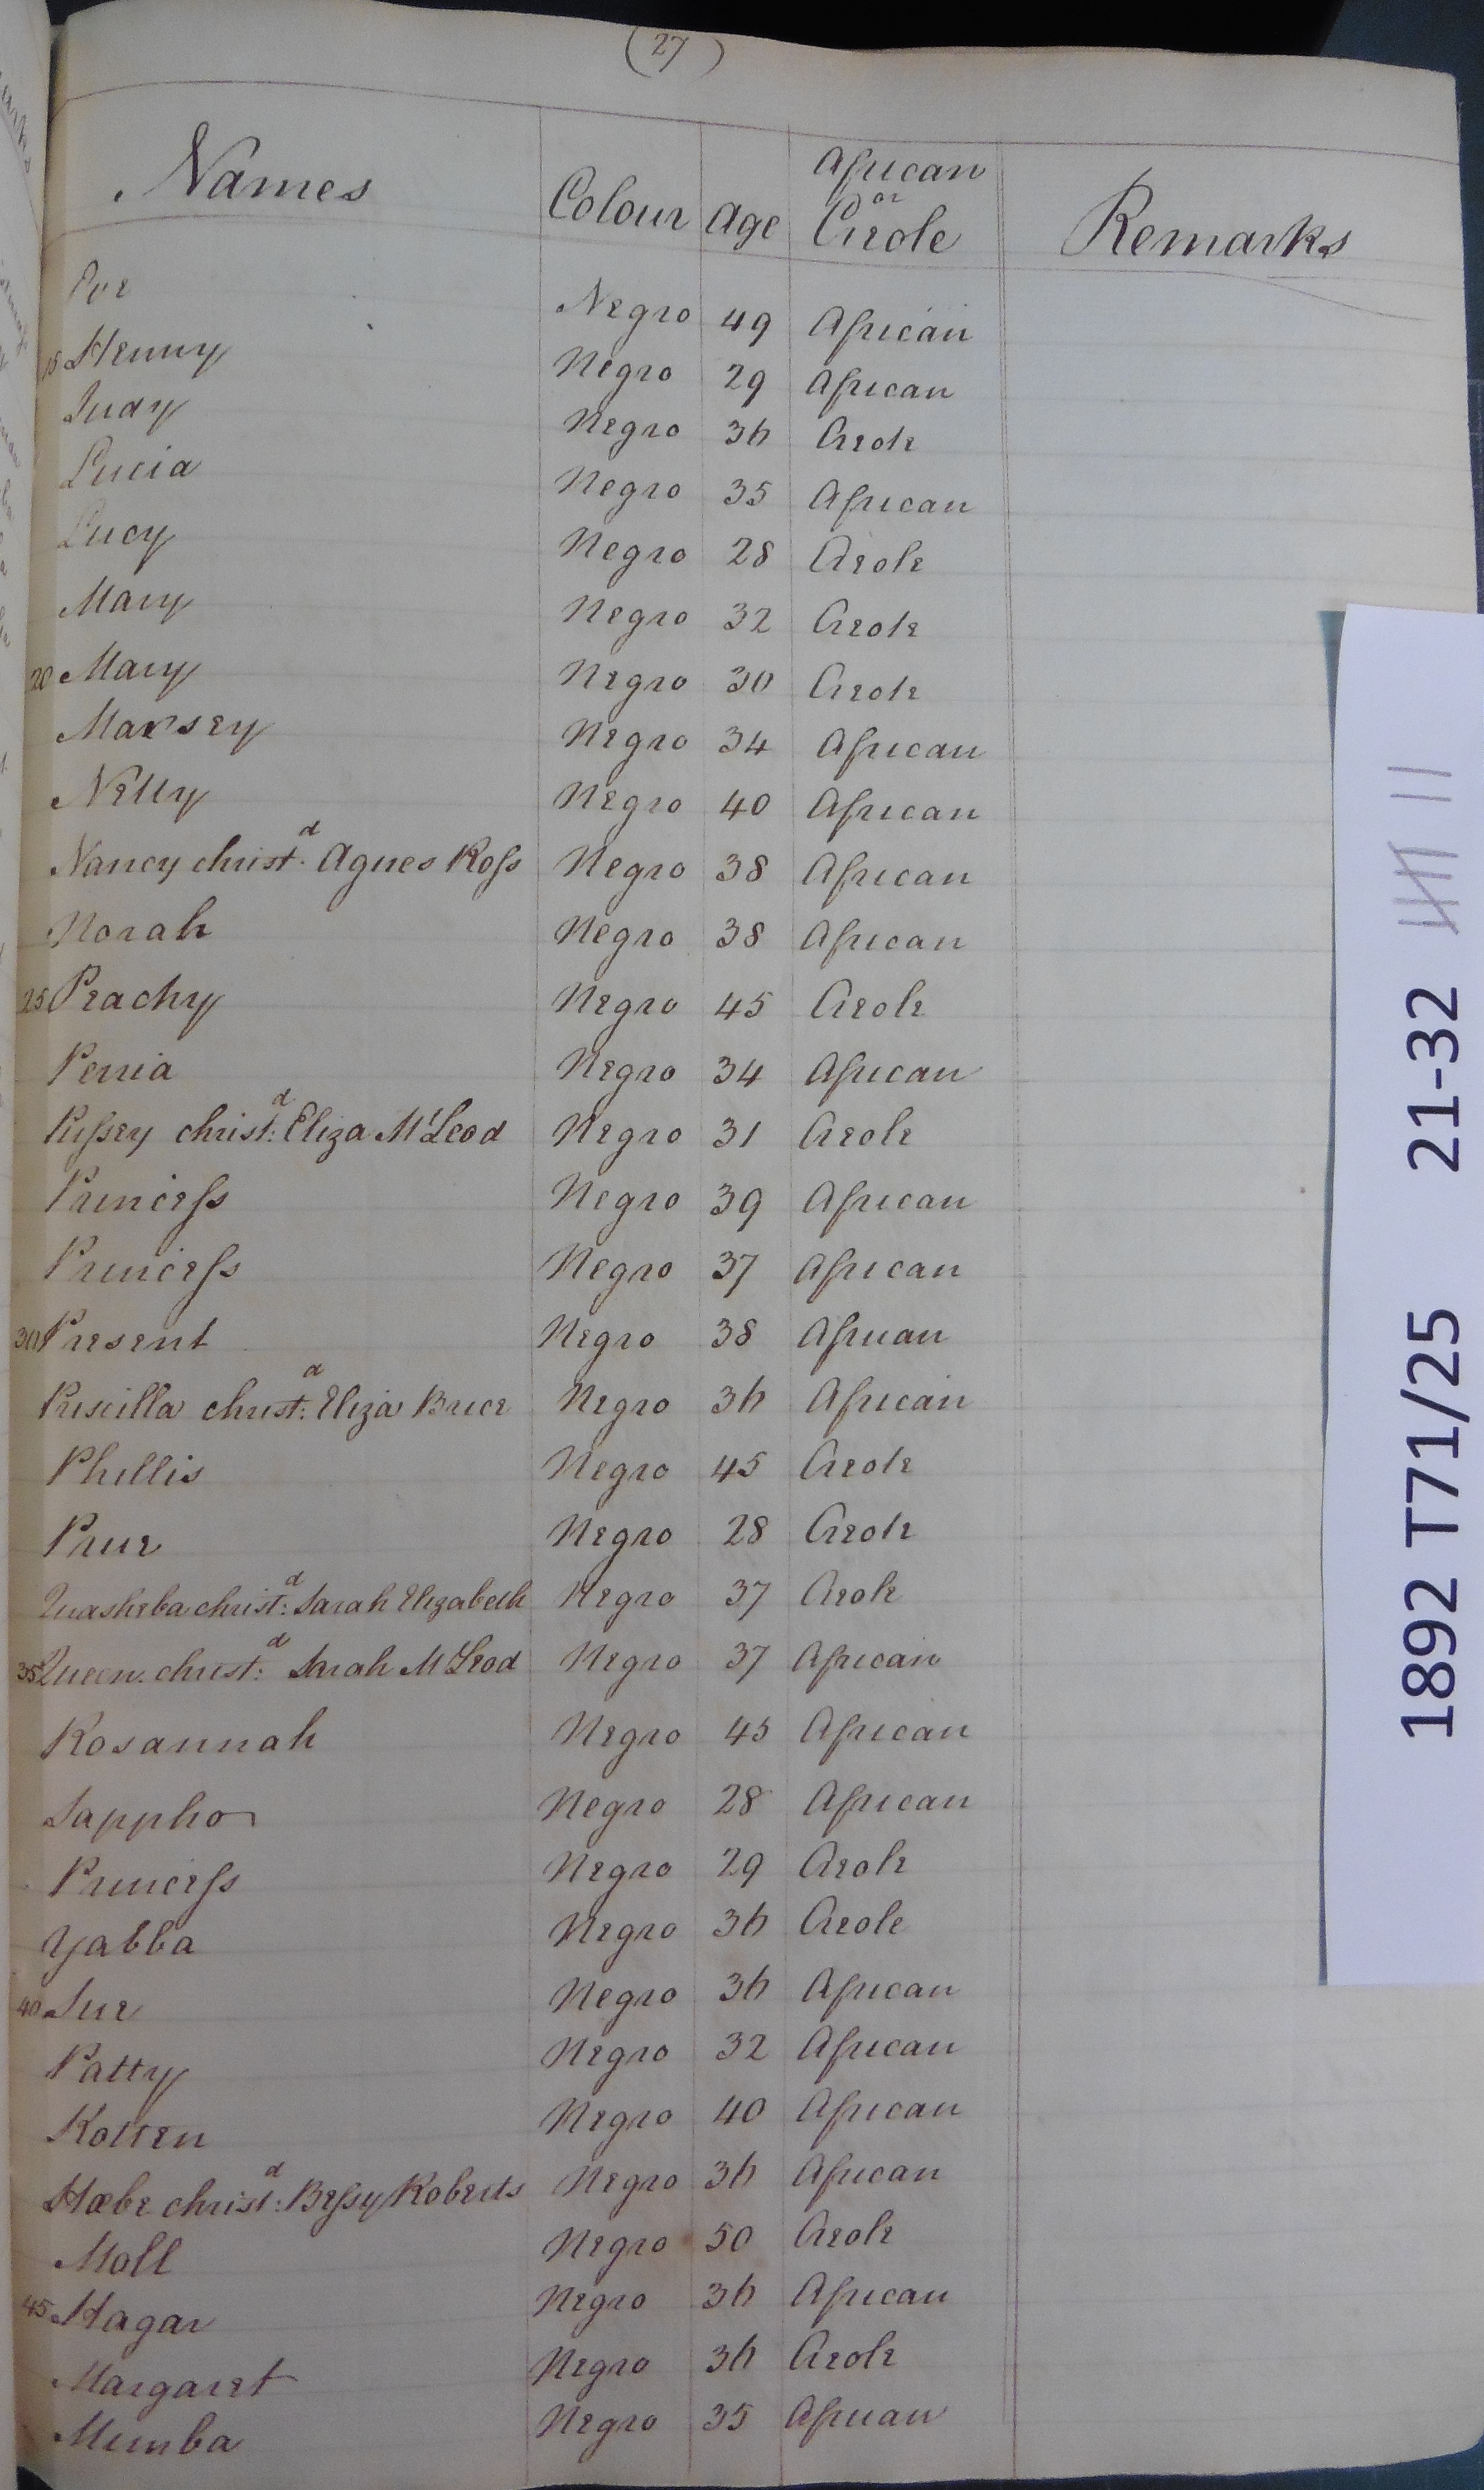 (27)
Names Colour Age African or Creole Remarks
Eve Negro 49 African
15 Henny Negro 29 African
Judy Negro 36 Creole
Lucia Negro 35 African
Lucy Negro 28 Creole
Mary Negro 32 Creole
20 Mary Negro 30 Creole
Marsey Negro 34 African
Nelly Negro 40 African
Nancy christ.d Agnes Ross Negro 38 African
Norah Negro 38 African
25 Peachy Negro 45 Creole
Penia Negro 34 African
Pussey christ:d Eliza McLeod Negro 31 Creole
Princess Negro 39 African
Princess Negro 37 African
30 Present Negro 38 African
Priscilla christ:d Eliza Brice Negro 36 African
Phillis Negro 45 Creole
Prue Negro 28 Creole
Quasheba christ:d Sarah Elizabeth Negro 37 Creole
35 Queen christ:d Sarah McLeod Negro 37 African
Rosannah Negro 45 African
Sappho Negro 28 African
Princess Negro 29 Creole
Yabba Negro 36 Creole
40 Sue Negro 36 African
Patty Negro 32 African
Negro 40 African
Hæbe christ:d Bessy Roberts Negro 36 African
Moll Negro 50 Creole
45 Hagar Negro 36 African
Margaret Negro 36 Creole
Mimba Negro 35 African
1892 T71/25 21-32